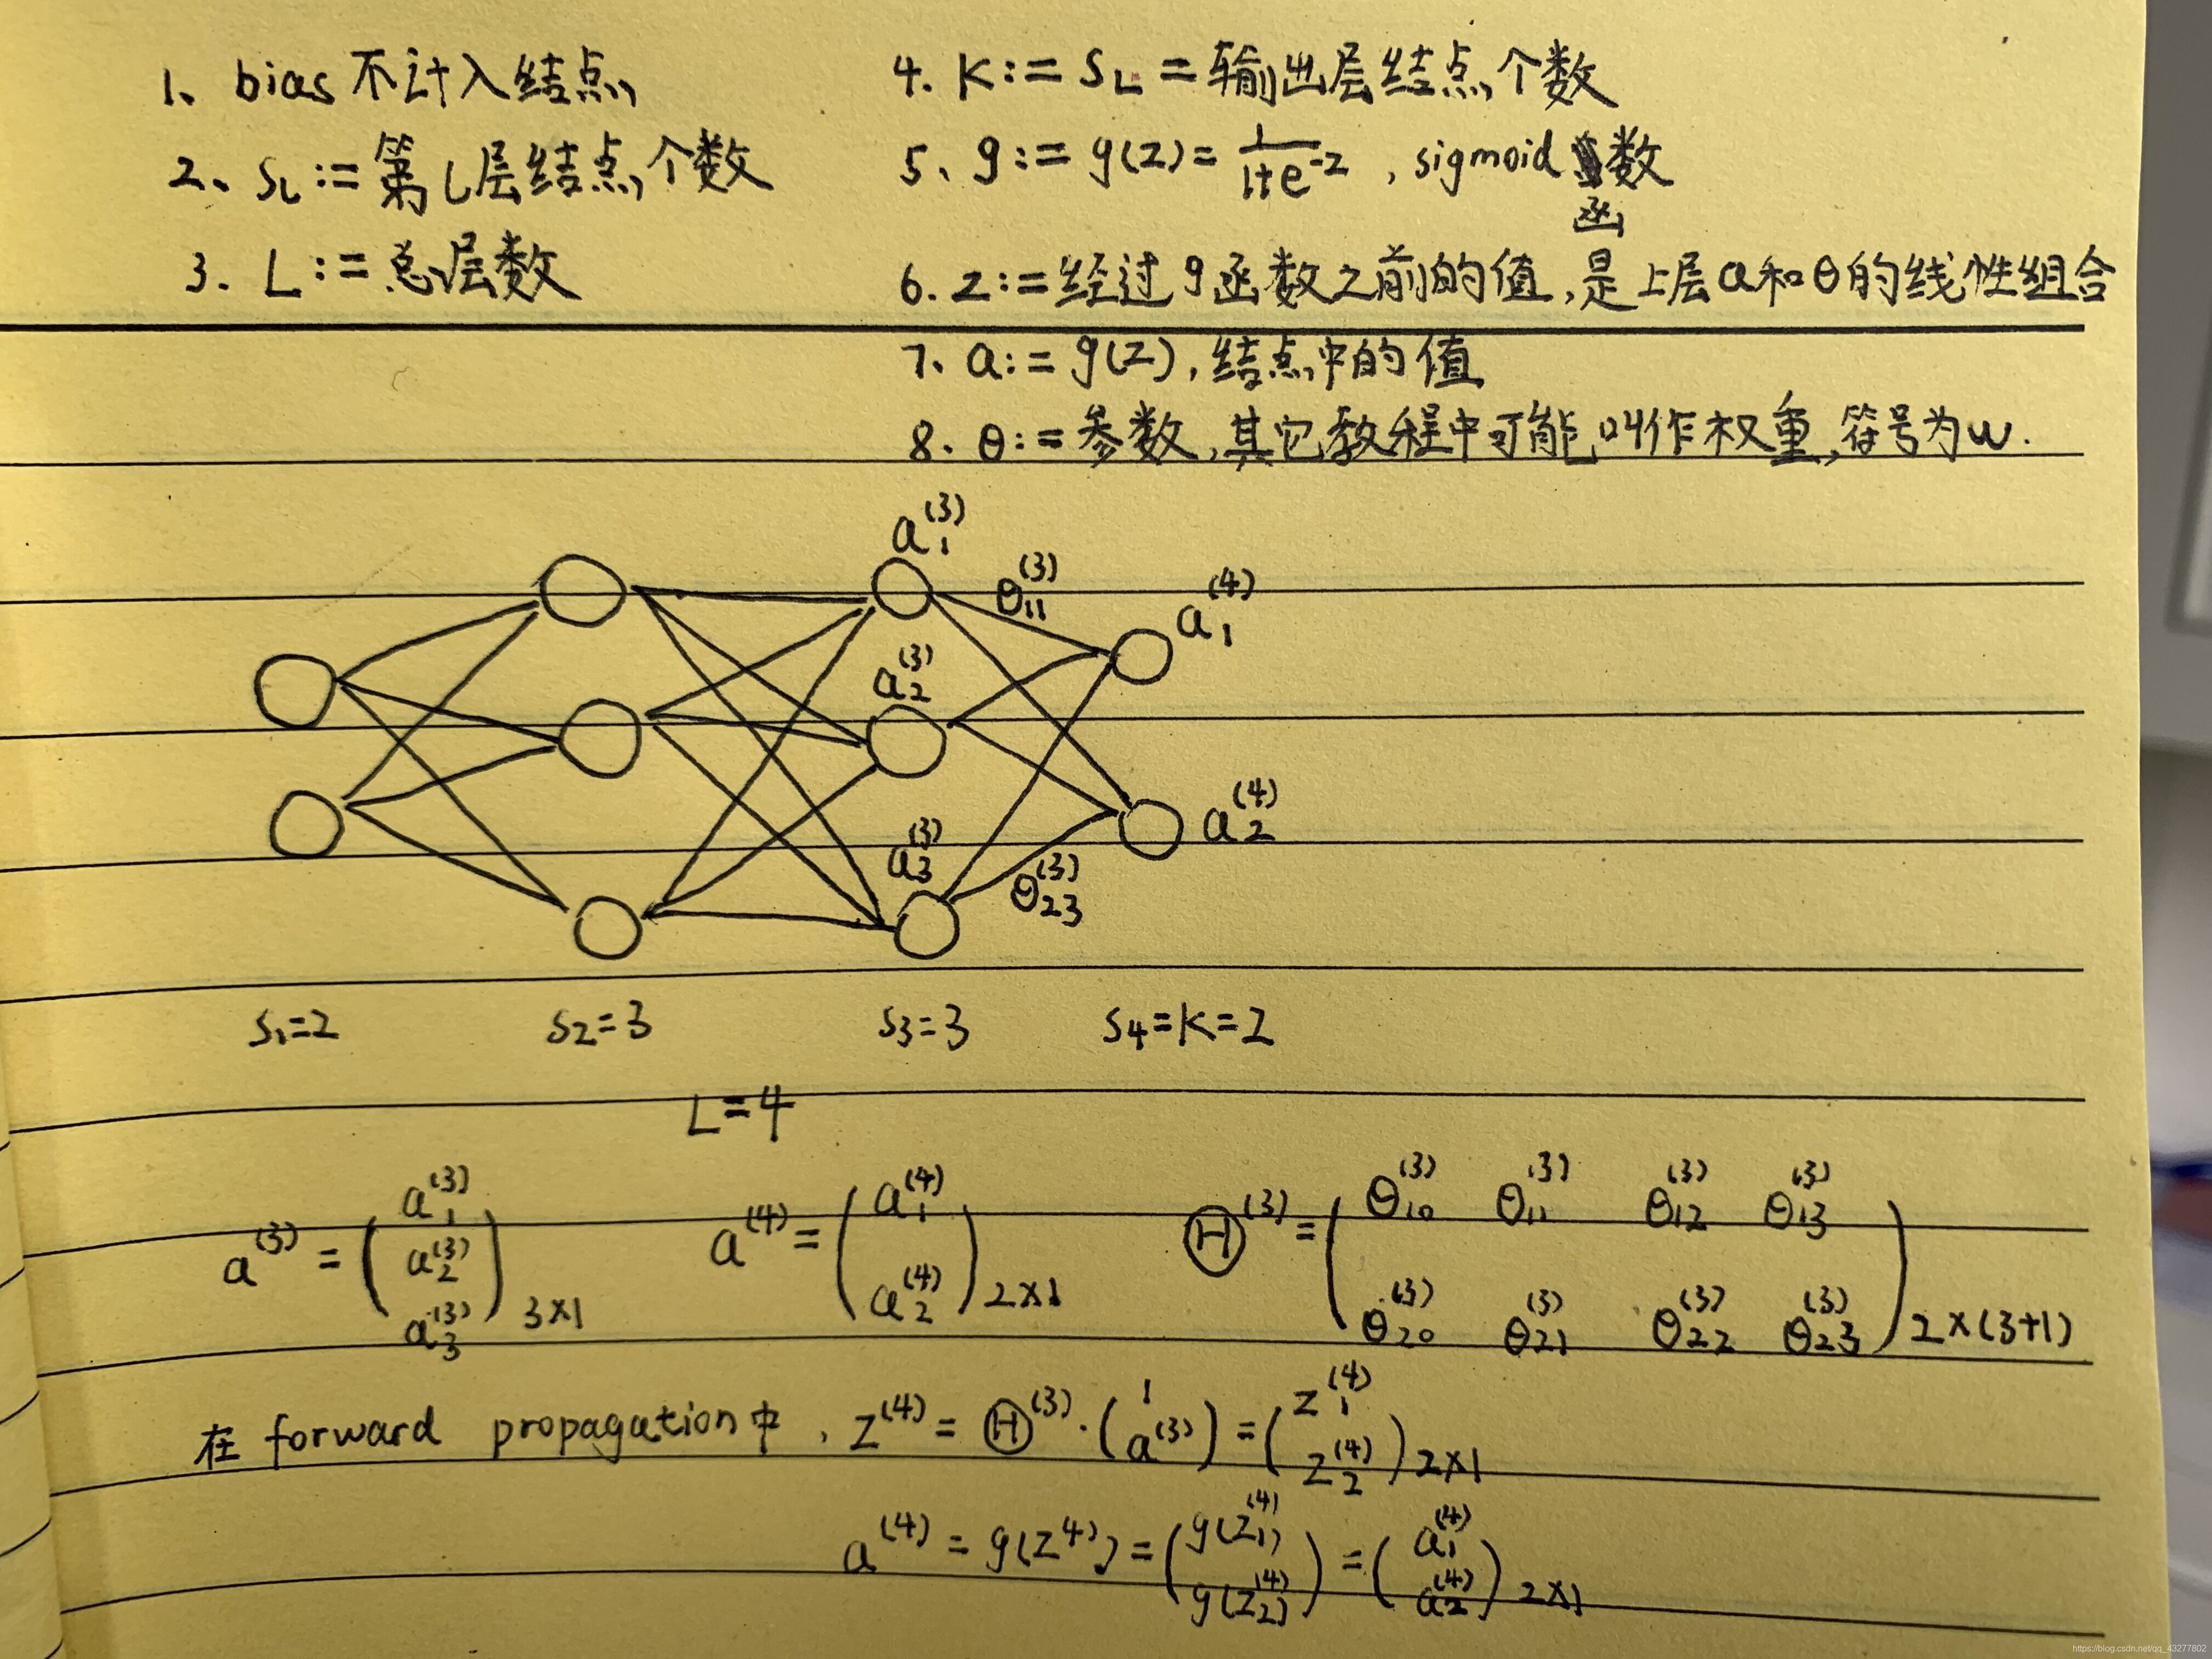 1、bias 不计入结点
2、s_l := 第l层结点个数
3. L := 总层数
4. K := s_L = 输出层结点个数
5、g := g(z) = 1/(1+e^-z) , sigmoid 函数
6. z := 经过g函数之前的值,是上层a和θ的线性组合
7、a := g(z), 结点中的值
8、θ := 参数,其它教程中可能叫作权重,符号为w.
a_1^(3)
θ_11^(3)
a_1^(4)
a_2^(3)
a_2^(4)
a_3^(3)
θ_23^(3)
s_1=2 s_2=3 s_3=3 s_4=K=2
L=4
a^(3) = (a_1^(3) a_2^(3) a_3^(3))_3×1 a^(4) = (a_1^(4) a_2^(4))_2×1 Θ^(3) = (θ_10^(3) θ_11^(3) θ_12^(3) θ_13^(3) θ_20^(3) θ_21^(3) θ_22^(3) θ_23^(3))_2×(3+1)
在 forward propagation中, z^(4) = Θ^(3) · (1 a^(3)) = (z_1^(4) z_2^(4))_2×1
a^(4) = g(z^4) = (g(z_1^(4)) g(z_2^(4))) = (a_1^(4) a_2^(4))_2×1
https://blog.csdn.net/qq_43277802